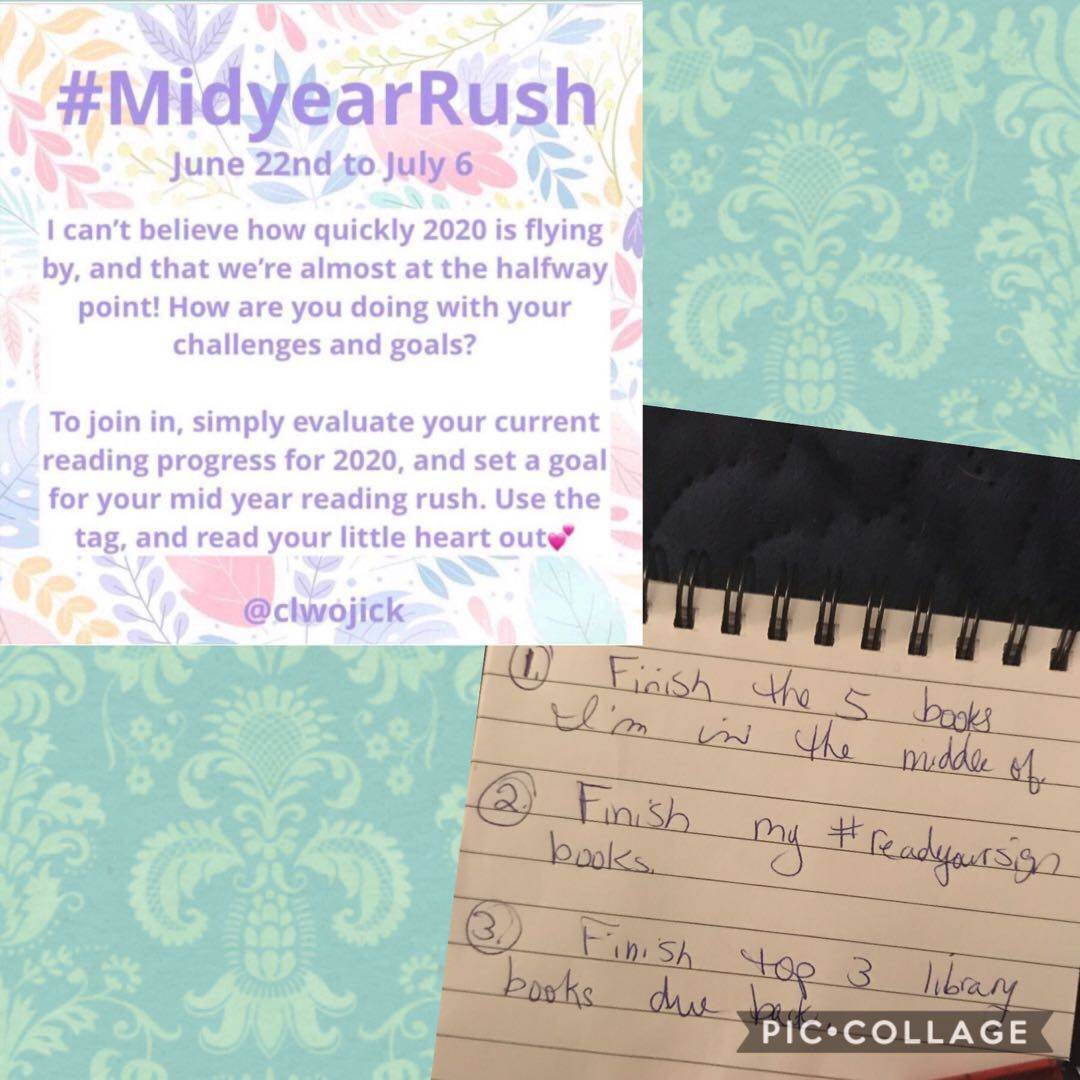 #MidyearRush
June 22nd to July 6
I can't believe how quickly 2020 is flying
by, and that we're almost at the halfway
point! How are you doing with your
challenges and goals?
To join in, simply evaluate your current
reading progress for 2020, and set a goal
for your mid year reading rush. Use the
tag, and read your little heart out💕
@clwojick
1. Finish the 5 books
I'm in the middle of.
2. Finish my #readyoursign
books.
3. Finish top 3 library
books due back.
PIC•COLLAGE